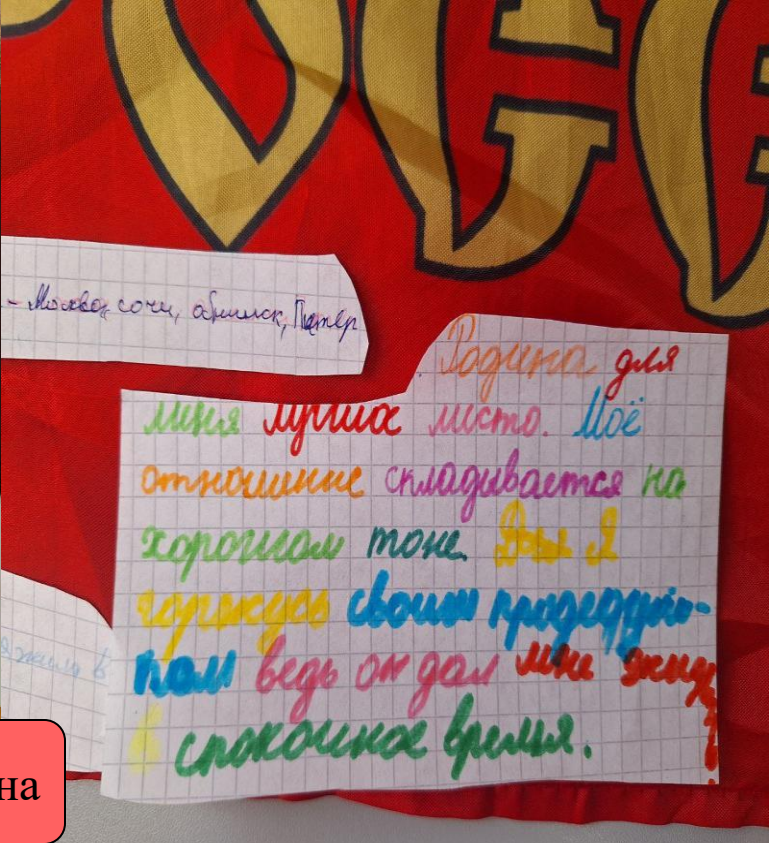 - Москва, сочи, обнинск, Питер
Родина для
меня лучшее место. Моё
отношение складывается на
хорошом тоне. Я
горжусь своим прадедушь-
кой ведь он дал мне жизнь
в спокойное время.
на